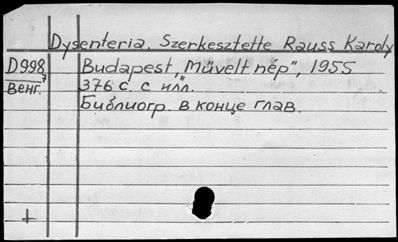 Dysenteria. Szerkesztette Rauss Karoly
D998 Budapest, „Müvelt nép", 1955
венг. 376 с. с илл.
Библиогр. в конце глав.